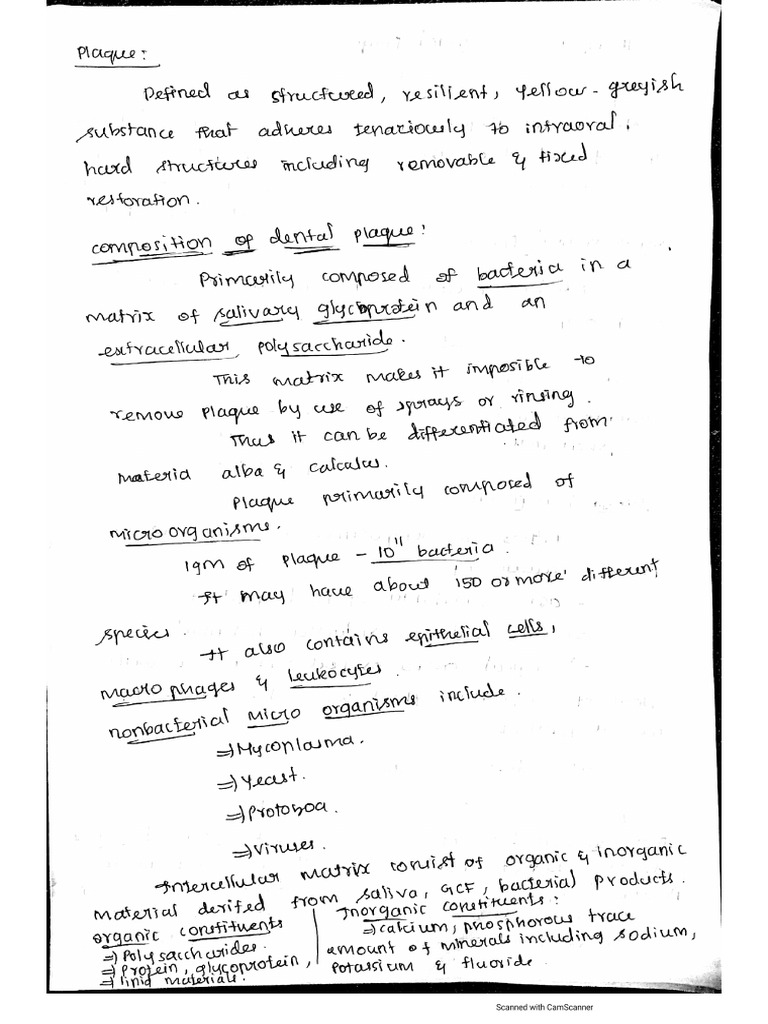 Plaque:
Defined as structured, resilient, yellow-greyish
substance that adheres tenaciously to intraoral
hard structures including removable & fixed
restoration.
composition of dental plaque:
Primarily composed of bacteria in a
matrix of salivary glycoprotein and an
extracellular polysaccharide.
This matrix makes it imposible to
remove plaque by use of sprays or rinsing.
Thus it can be differentiated from
materia alba & calculus.
Plaque primarily composed of
microorganisms.
1gm of plaque - 10¹¹ bacteria.
It may have about 150 or more different
species.
It also contains epithelial cells,
macrophages & leukocytes.
nonbacterial micro organisms include.
⇒Mycoplasma.
⇒Yeast.
⇒Protozoa.
⇒Viruses.
Intercellular matrix consist of organic & inorganic
material derifed from saliva, GCF, bacterial products.
organic constituents
⇒Polysaccharides.
⇒Protein, glycoprotein,
⇒lipid materials.
Inorganic constituents:
⇒calcium, phosphorous trace
amount of minerals including sodium,
potassium & fluoride.
Scanned with CamScanner